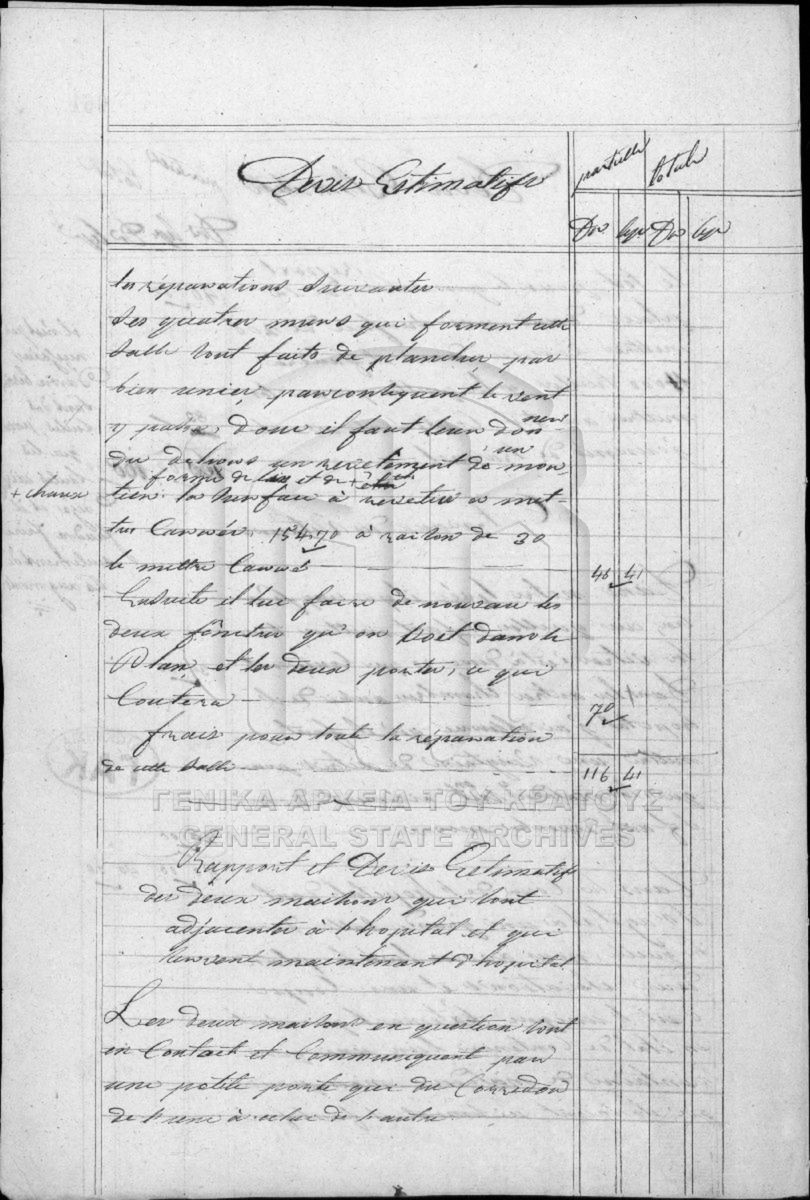 Devis Estimatifs
partielle
totale
Drs lep Drs lep
les réparations suivantes
Les quatres murs qui forment cette
Salle sont faits de planches pas
bien unies parconséquent le vent
y passe, donc il faut leur don
ner
du dehors un revêtement de mor
un
formé de et de +
tier. la surface à revêtir a met-
+ chaux
tres Carrés. 154,70 à raison de 30
le mettre Carré
46 41
Ensuite il faut faire de nouveau les
deux fênetres qu'on voit dans le
Plan et les deux portes, ce que
Coutera
70
frais pour toute la réparation
de cette Salle
116 41
ΓΕΝΙΚΑ ΑΡΧΕΙΑ ΤΟΥ ΚΡΑΤΟΥΣ
GENERAL STATE ARCHIVES
Rapport et Devis Estimatifs
des deux maisons qui sont
adjacentes à l'hopital et qui
servent maintenant d'hopital.
Les deux maisons en question sont
en Contact et Communiquent par
une petite porte qui du Corredor
de l'une à celui de l'autre